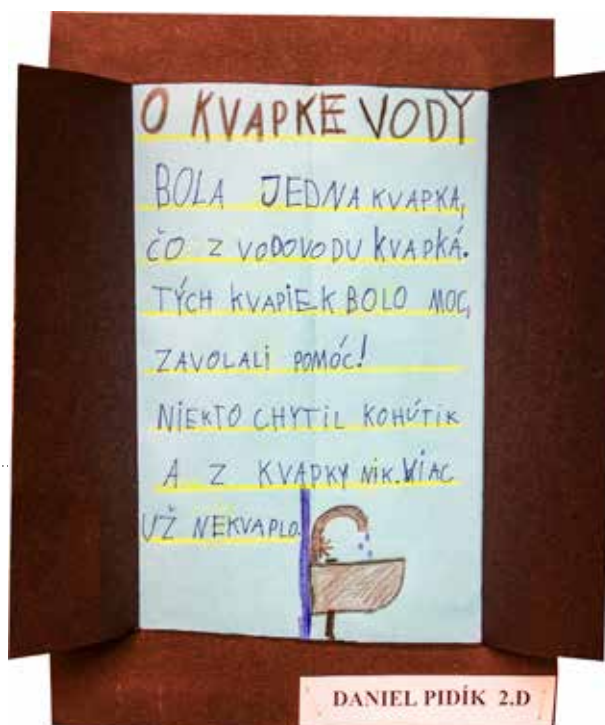 O KVAPKE VODY
BOLA JEDNA KVAPKA,
ČO Z VODOVODU KVAPKÁ.
TÝCH KVAPIEK BOLO MOC,
ZAVOLALI POMÓC!
NIEKTO CHYTIL KOHÚTIK
A Z KVAPKY NIK. VIAC
UŽ NEKVAPLO.
DANIEL PIDÍK 2.D